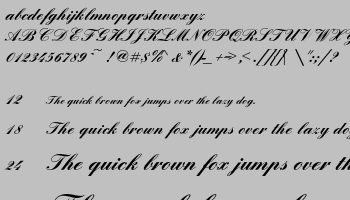 abcdefghijklmnopqrstuvwxyz
ABCDEFGHIJKLMNOPQRSTUVWXYZ
0123456789
12 The quick brown fox jumps over the lazy dog.
18 The quick brown fox jumps over the lazy
24 The quick brown fox jumps over